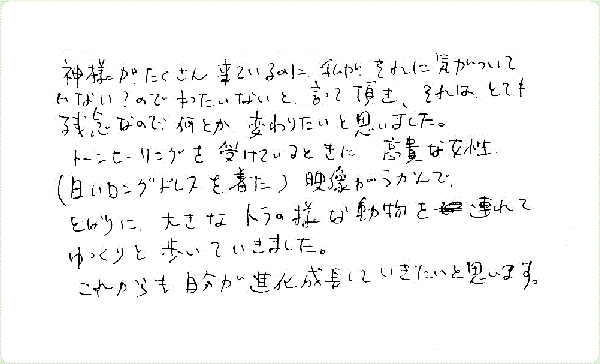 神様がたくさん来ているのに、私がそれに気がついて
いない?のでもったいないと言って頂き、それはとても
残念なので何とか変わりたいと思いました。
トーンヒーリングを受けているときに、高貴な女性
(白いロングドレスを着た)映像がうかんで、
となりに、大きなトラの様な動物を連れて
ゆっくりと歩いていきました。
これからも自分が進化成長していきたいと思います。